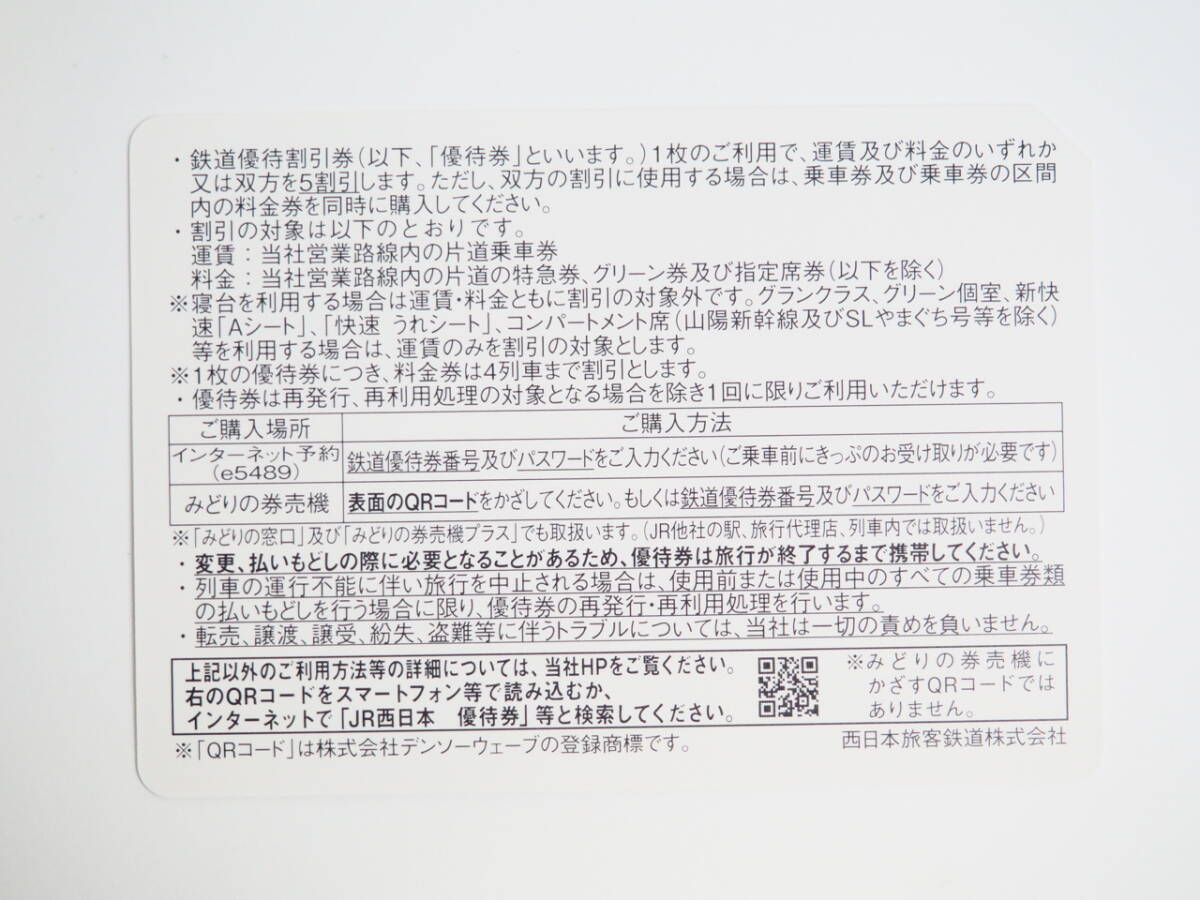 ・鉄道優待割引券(以下、「優待券」といいます。)1枚のご利用で、運賃及び料金のいずれか
又は双方を5割引します。ただし、双方の割引に使用する場合は、乗車券及び乗車券の区間
内の料金券を同時に購入してください。
・割引の対象は以下のとおりです。
運賃：当社営業路線内の片道乗車券
料金：当社営業路線内の片道の特急券、グリーン券及び指定席券(以下を除く)
※寝台を利用する場合は運賃・料金ともに割引の対象外です。グランクラス、グリーン個室、新快
速「Aシート」、「快速 うれシート」、コンパートメント席(山陽新幹線及びSLやまぐち号等を除く)
等を利用する場合は、運賃のみを割引の対象とします。
※1枚の優待券につき、料金券は4列車まで割引とします。
・優待券は再発行、再利用処理の対象となる場合を除き1回に限りご利用いただけます。
ご購入場所 ご購入方法
インターネット予約
(e5489)
鉄道優待券番号及びパスワードをご入力ください(ご乗車前にきっぷのお受け取りが必要です)
みどりの券売機 表面のQRコードをかざしてください。もしくは鉄道優待券番号及びパスワードをご入力ください
※「みどりの窓口」及び「みどりの券売機プラス」でも取扱います。(JR他社の駅、旅行代理店、列車内では取扱いません。)
・変更、払いもどしの際に必要となることがあるため、優待券は旅行が終了するまで携帯してください。
・列車の運行不能に伴い旅行を中止される場合は、使用前または使用中のすべての乗車券類
の払いもどしを行う場合に限り、優待券の再発行・再利用処理を行います。
・転売、譲渡、譲受、紛失、盗難等に伴うトラブルについては、当社は一切の責めを負いません。
上記以外のご利用方法等の詳細については、当社HPをご覧ください。
右のQRコードをスマートフォン等で読み込むか、
インターネットで「JR西日本　優待券」等と検索してください。
※みどりの券売機に
かざすQRコードでは
ありません。
※「QRコード」は株式会社デンソーウェーブの登録商標です。
西日本旅客鉄道株式会社